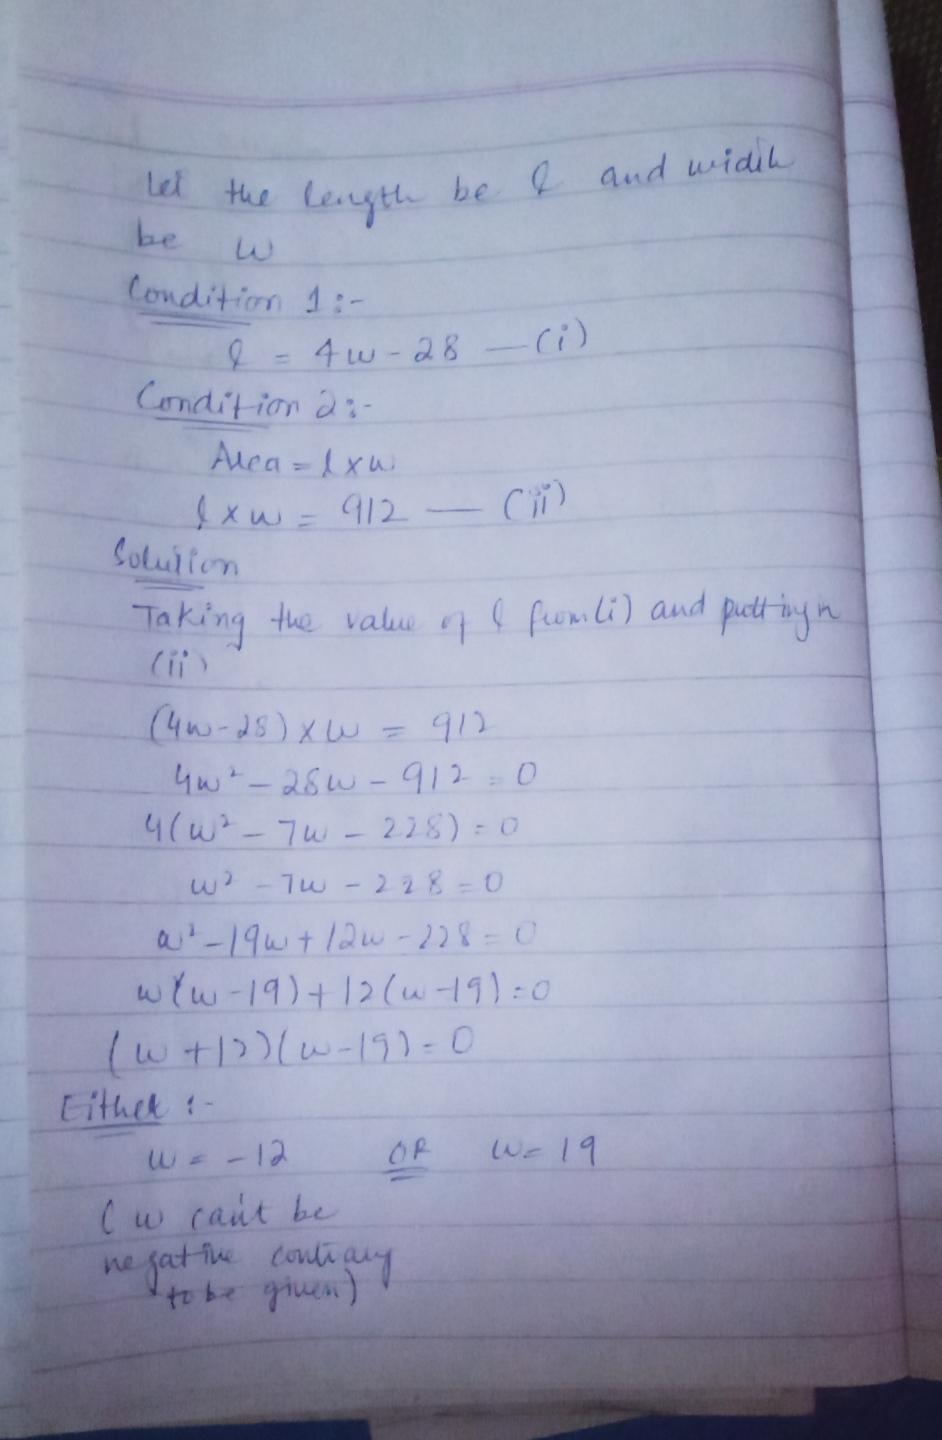 Let the length be l and width
be w
Condition 1:-
l = 4w - 28 — (i)
Condition 2:-
Area = l x w
l x w = 912 — (ii)
Solution
Taking the value of l from (i) and putting n
(ii)
(4w-28) x w = 912
4w² - 28w - 912 = 0
4(w² - 7w - 228) = 0
w² - 7w - 228 = 0
w² - 19w + 12w - 228 = 0
w(w-19) + 12(w-19) = 0
(w+12)(w-19) = 0
Either :-
w = -12 OR w = 19
(w can't be
negative contrary
to be given)